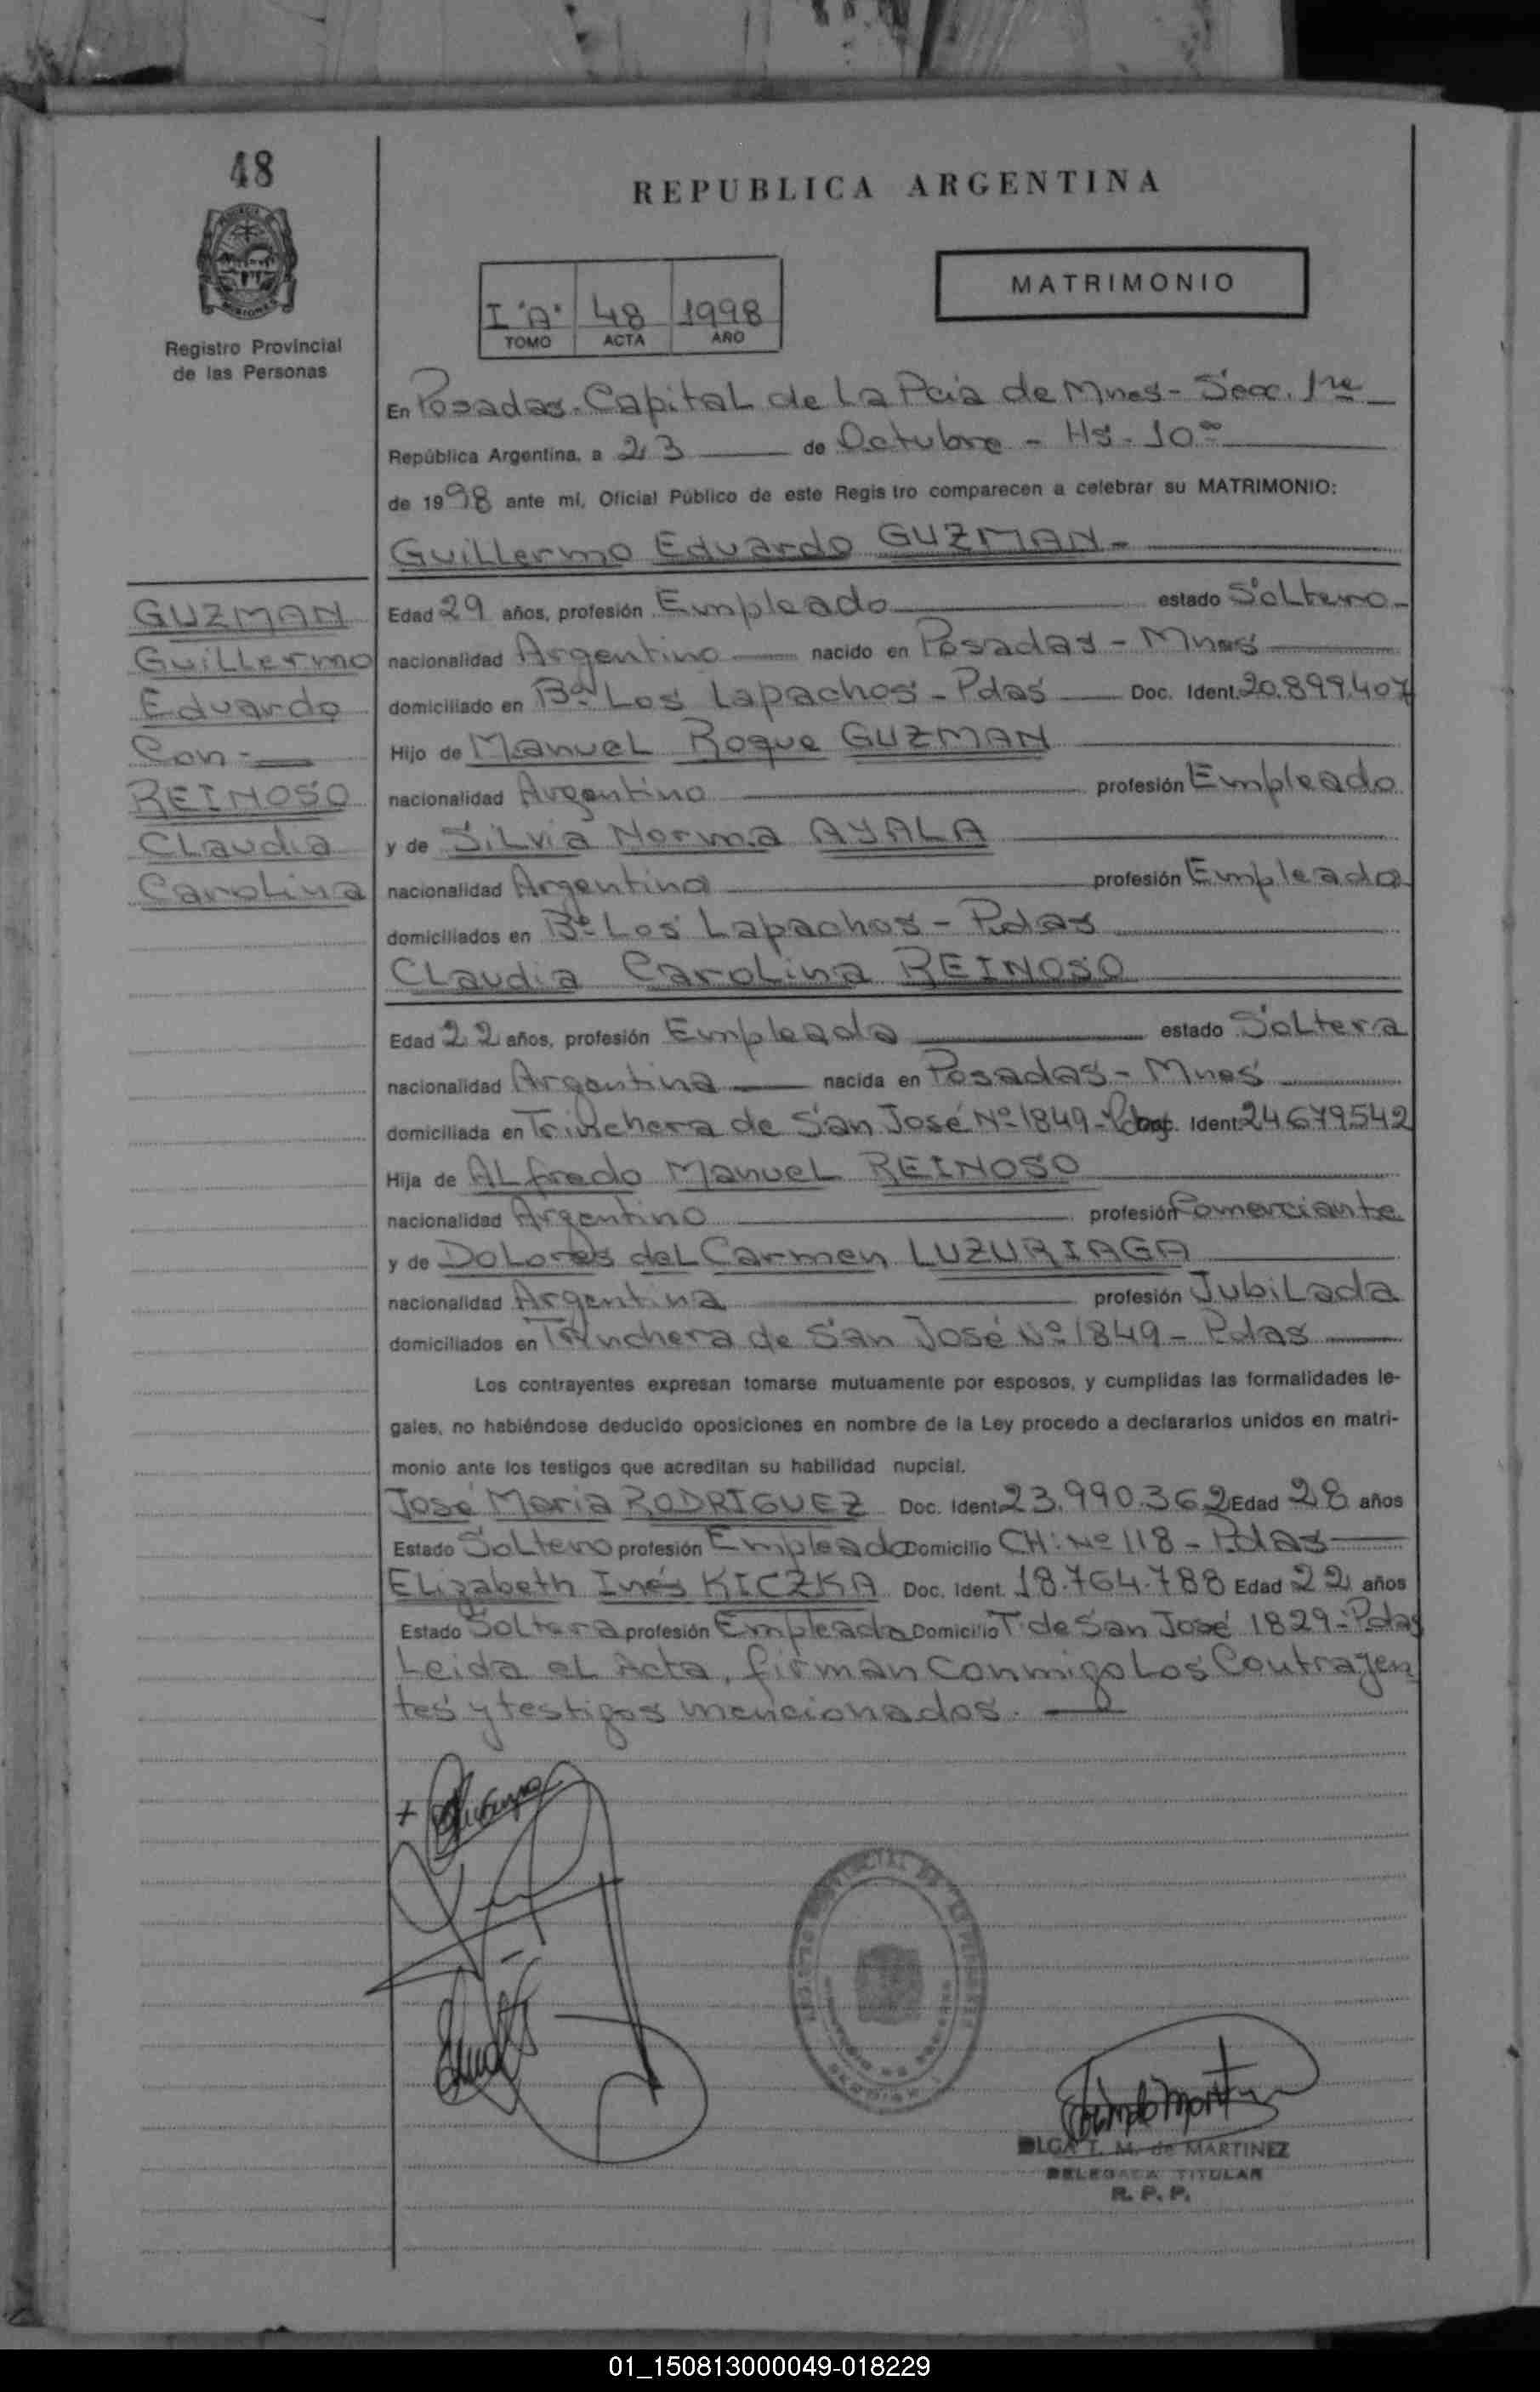 48
REPUBLICA ARGENTINA
MATRIMONIO
I "A" 48 1998
TOMO ACTA AÑO
Registro Provincial
de las Personas
En Posadas - Capital de La Pcia de Mnes - Secc. 1ra
República Argentina, a 23 de Octubre - Hs - 10 00
de 1998 ante mí, Oficial Público de este Registro comparecen a celebrar su MATRIMONIO:
Guillermo Eduardo GUZMAN -
GUZMAN
Guillermo
Eduardo
Con -
REINOSO
Claudia
Carolina
Edad 29 años, profesión Empleado estado Soltero -
nacionalidad Argentino nacido en Posadas - Mnes
domiciliado en Bº Los Lapachos - Pdas Doc. Ident. 20.899.407
Hijo de Manuel Roque GUZMAN
nacionalidad Argentino profesión Empleado
y de Silvia Norma AYALA
nacionalidad Argentina profesión Empleada
domiciliados en Bº Los Lapachos - Pdas
Claudia Carolina REINOSO
Edad 22 años, profesión Empleada estado Soltera
nacionalidad Argentina nacida en Posadas - Mnes
domiciliada en Trinchera de San José Nº 1849 - Pdas Doc. Ident. 24679542
Hija de Alfredo Manuel REINOSO
nacionalidad Argentino profesión Comerciante
y de Dolores del Carmen LUZURIAGA
nacionalidad Argentina profesión Jubilada
domiciliados en Trinchera de San José Nº 1849 - Pdas
Los contrayentes expresan tomarse mutuamente por esposos, y cumplidas las formalidades le-
gales, no habiéndose deducido oposiciones en nombre de la Ley procedo a declararlos unidos en matri-
monio ante los testigos que acreditan su habilidad nupcial.
José María RODRIGUEZ Doc. Ident. 23.990.362 Edad 28 años
Estado Soltero profesión Empleado Domicilio CH: Nº 118 - Pdas
Elizabeth Inés KICZKA Doc. Ident. 18.764.788 Edad 22 años
Estado Soltera profesión Empleada Domicilio T. de San José 1829 - Pdas
Leida el Acta, firman conmigo Los Contrayen
tes y testigos mencionados.
OLGA T. M. de MARTINEZ
DELEGADA TITULAR
R. P. P.
01_150813000049-018229